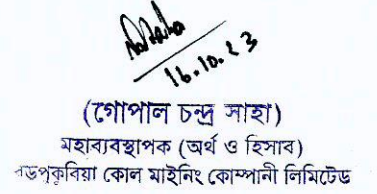 16.10.23
(গোপাল চন্দ্র সাহা)
মহাব্যবস্থাপক (অর্থ ও হিসাব)
কোল মাইনিং কোম্পানী লিমিটেড